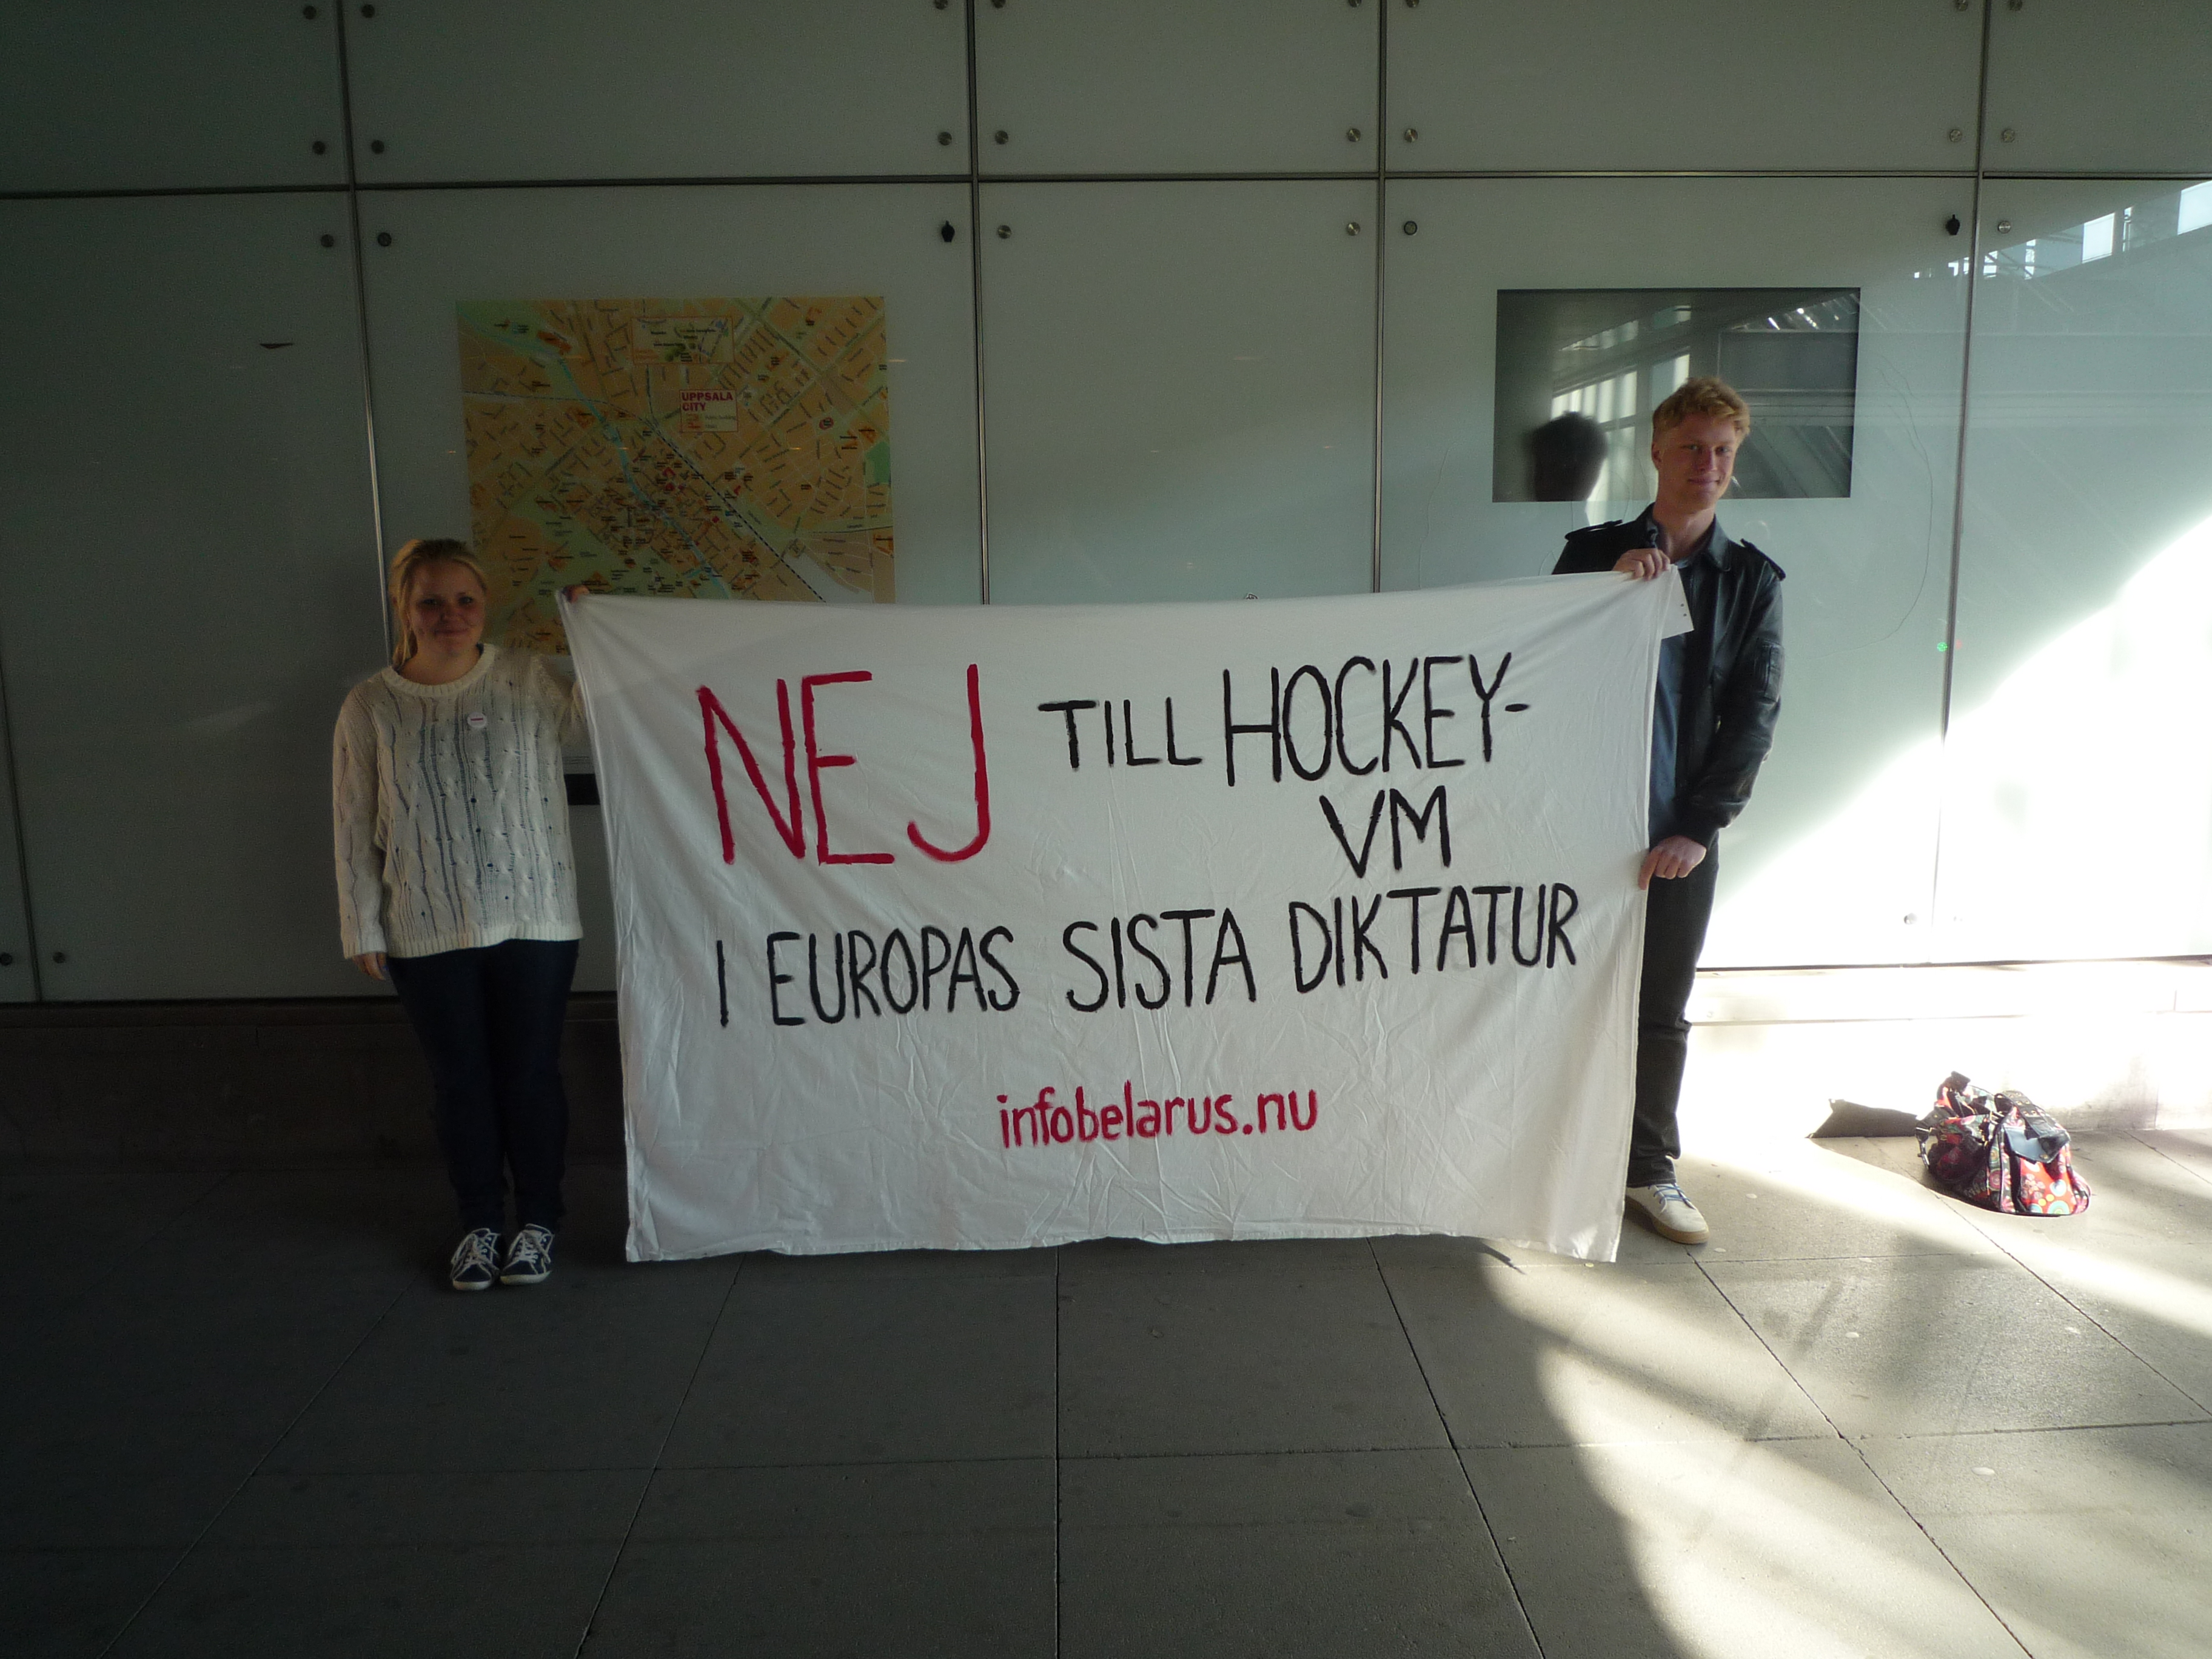 UPPSALA
CITY
NEJ TILL HOCKEY-
VM
I EUROPAS SISTA DIKTATUR
infobelarus.nu